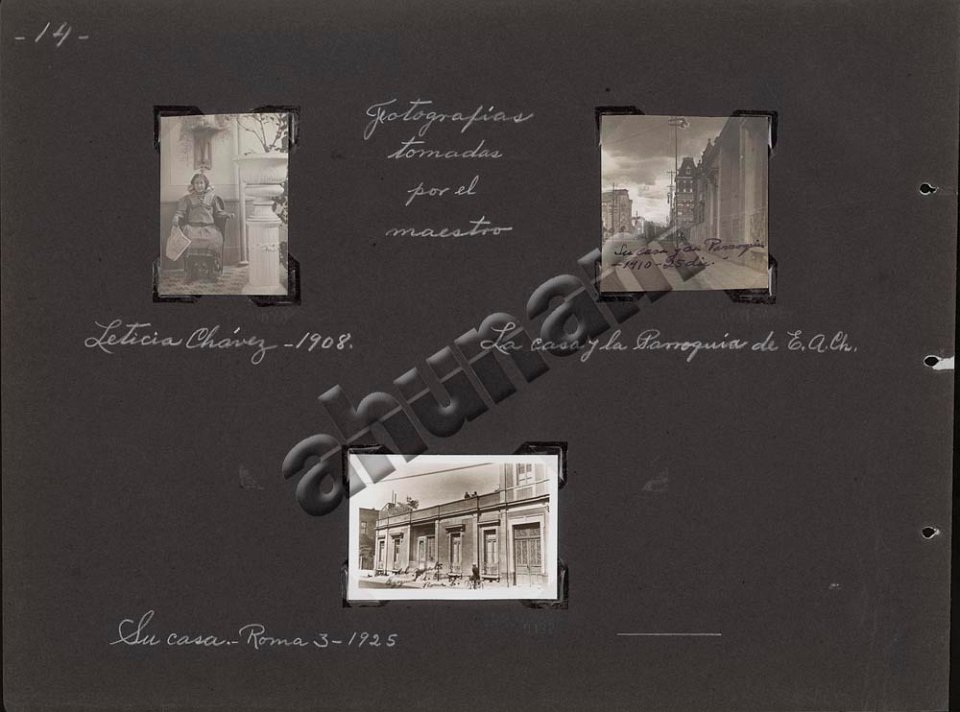 - 14 -
Fotografías
tomadas
por el
maestro
Su casa y su Parroquia
-1910-25 dic.
Leticia Chávez - 1908.
La casa y la Parroquia de E.A.Ch.
ahunam
Su casa.- Roma 3 - 1925